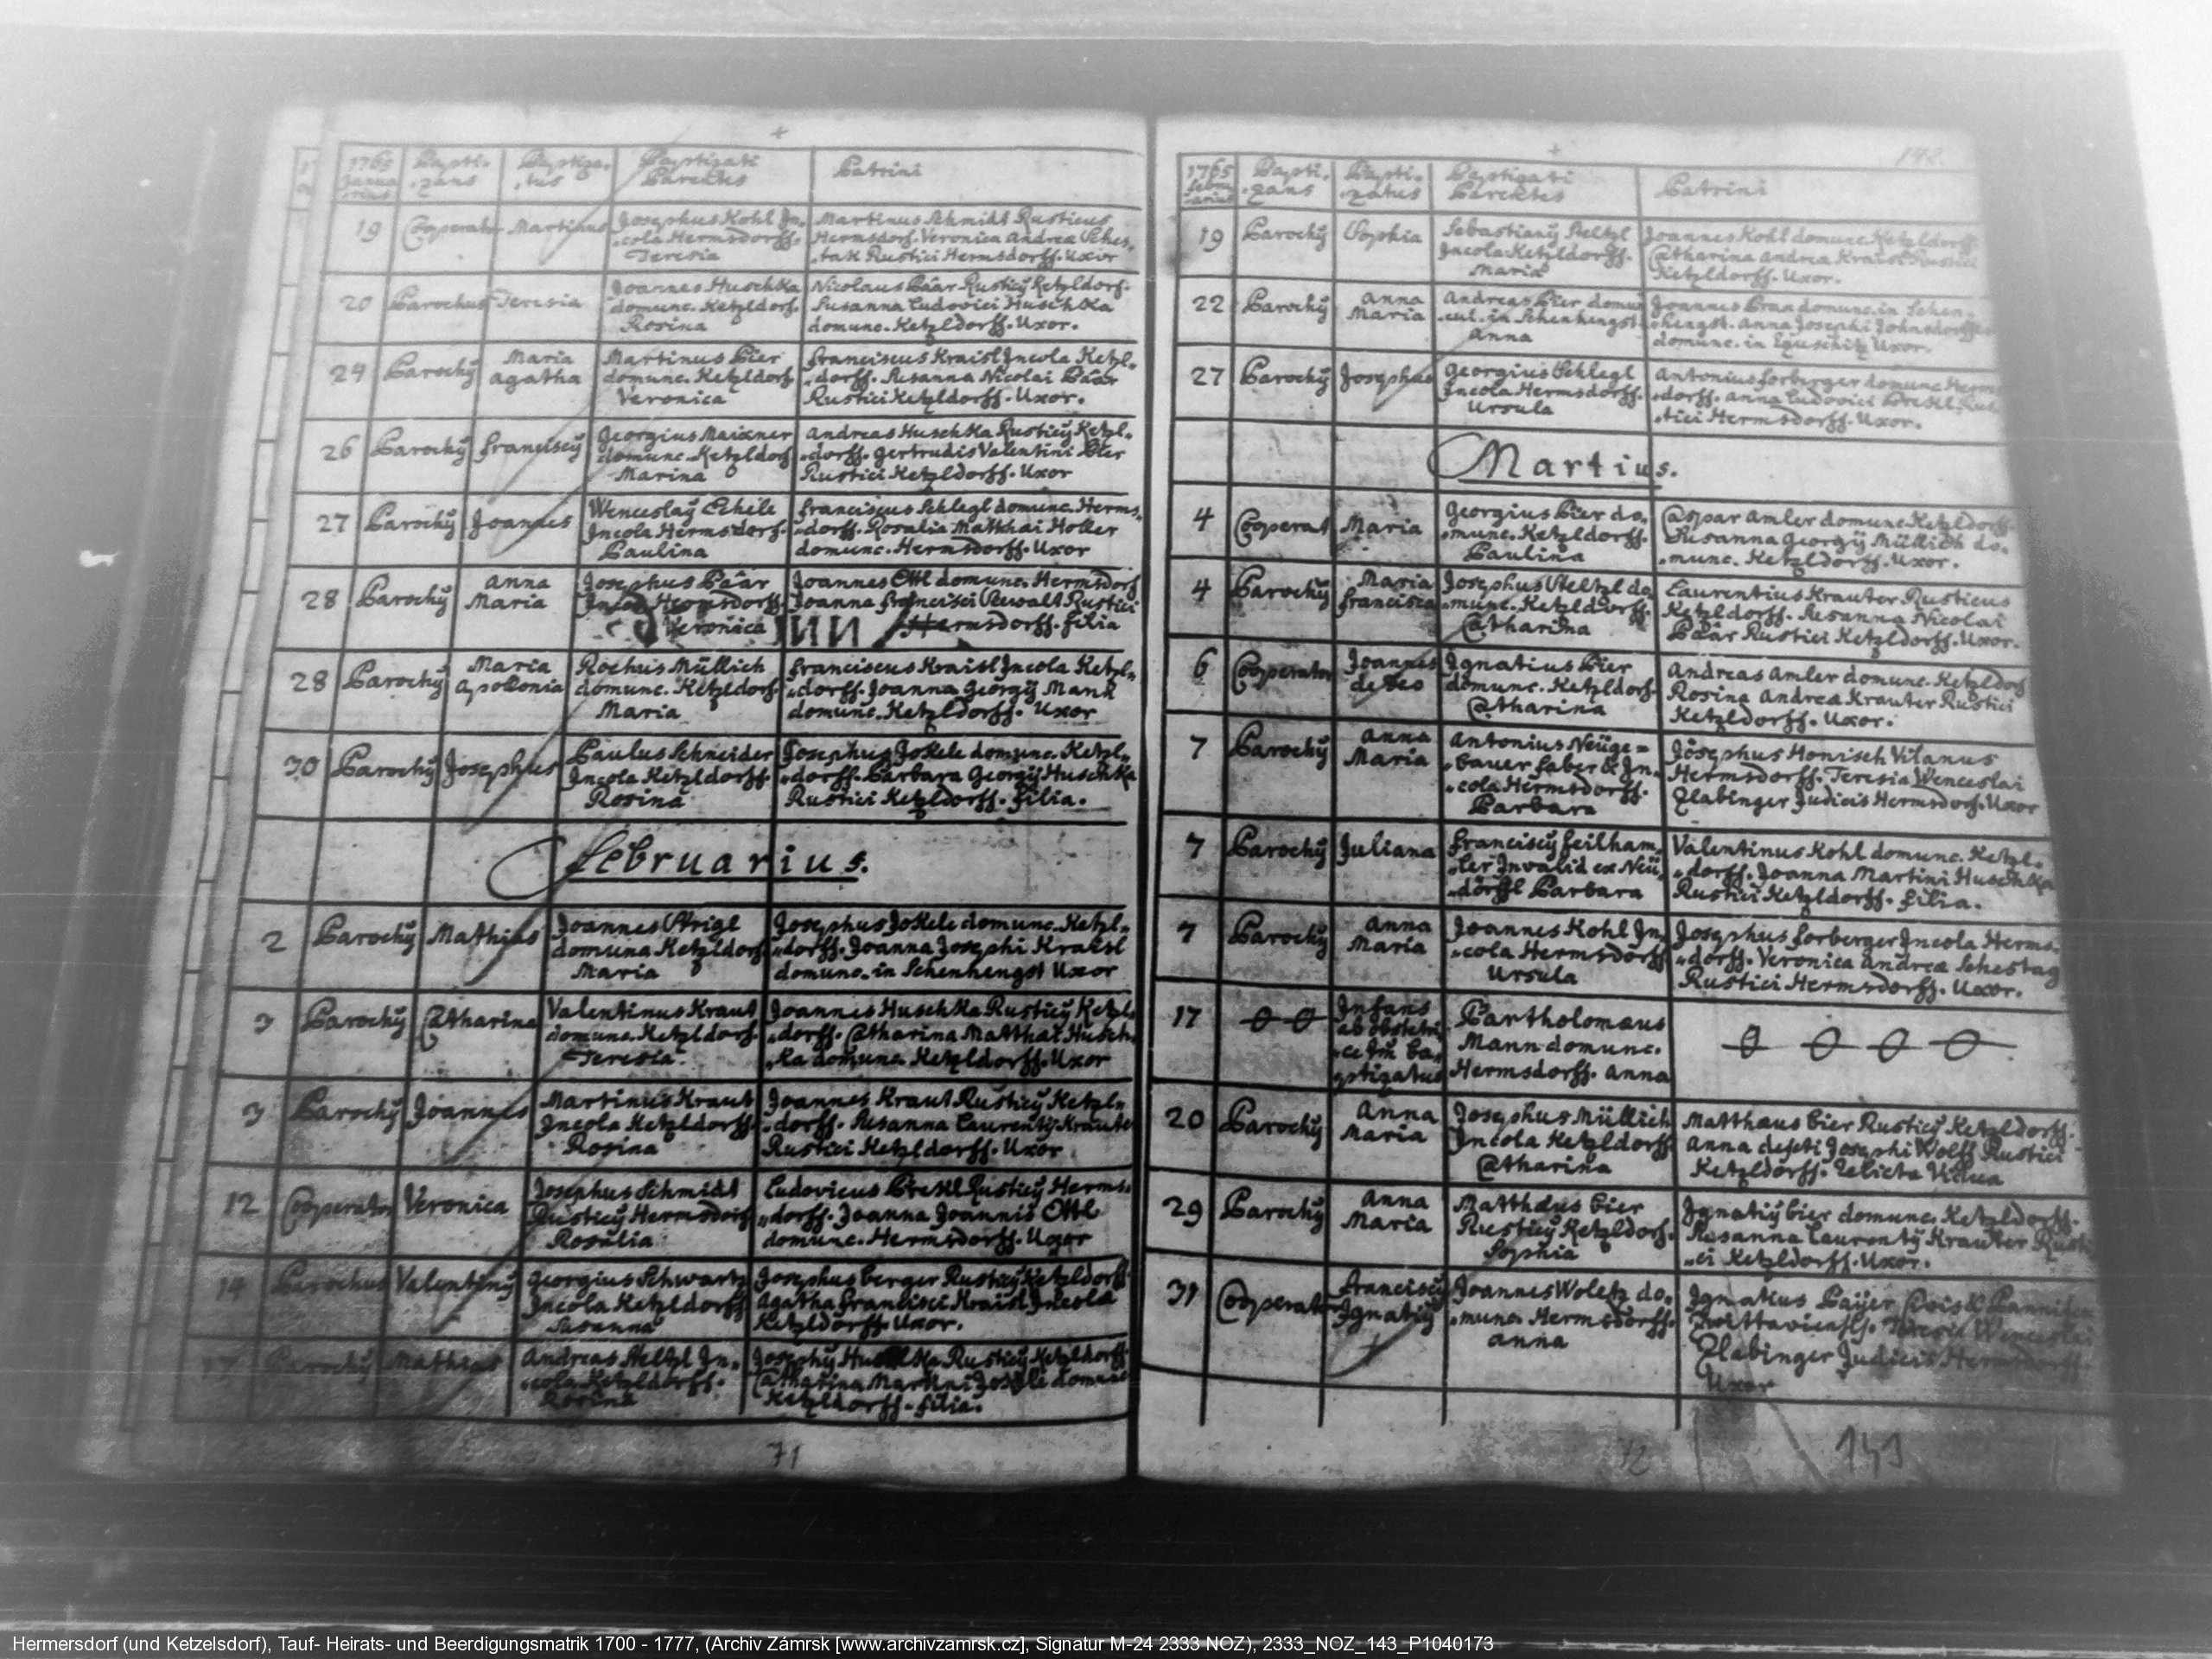 1765 Janua
rius
Bapti-
zans
Baptiza-
tus
Baptizati
Parentes
Patrini
19
Cooperator
Martinus
Josephus Kohl In-
cola Hermsdorff.
Teresia
Martinus Schmidt Rusticus
Hermsdorf. Veronica Andreæ Sches-
tak Rustici Hermsdorff. Uxor
20
Parochus
Teresia
Joannes Huschka
domunc. Ketzldorf.
Rosina
Nicolaus Päär Rusticÿ Ketzldorf.
Susanna Ludovici Huschka
domunc. Ketzldorff. Uxor.
24
Parochÿ
Maria
Agatha
Martinus Bier
domunc. Ketzldorf
Veronica
Franciscus Kraisl Incola Ketzl-
dorff. Susanna Nicolai Päär
Rustici Ketzldorff. Uxor.
26
Parochÿ
Franciscÿ
Georgius Maixner
domunc. Ketzldorf
Marina
Andreas Huschka Rusticÿ Ketzl-
dorff. Gertrudis Valentini Bier
Rustici Ketzldorff. Uxor
27
Parochÿ
Joannes
Wenceslaÿ Schele
Incola Hermsdorf.
Paulina
Franciscus Schlegl domunc. Herms-
dorff. Rosalia Matthæi Holler
domunc. Hermsdorff. Uxor
28
Parochÿ
Anna
Maria
Josephus Päär
Incola Hermsdorff.
Veronica
Joannes Ottl domunc. Hermsdorf
Joanna Francisci Rustici
Hermsdorff. filia
28
Parochÿ
Maria
Apolonia
Rochus Müllich
domunc. Ketzldorf.
Maria
Franciscus Kraisl Incola Ketzl-
dorff. Joanna Georgÿ Mank
domunc. Ketzldorff. Uxor
30
Parochÿ
Josephus
Paulus Schneider
Incola Ketzldorff.
Rosina
Josephus Jokele domunc. Ketzl-
dorff. Barbara Georgÿ Huschka
Rustici Ketzldorff. filia.
Februarius.
2
Parochÿ
Mathias
Joannes Strigl
domunc. Ketzldorf.
Maria
Josephus Jokele domunc. Ketzl-
dorff. Joanna Josephi Kraisl
domunc. in Schenhengst Uxor
3
Parochÿ
Catharina
Valentinus Kraut
domunc. Ketzldorf.
Teresia
Joannes Huschka Rusticÿ Ketzl-
dorff. Catharina Matthæi Husch-
ka domunc. Ketzldorff. Uxor
3
Parochÿ
Joannes
Martinus Kraut
Incola Ketzldorff.
Rosina
Joannes Kraut Rusticÿ Ketzl-
dorff. Susanna Laurentÿ Krauter
Rustici Ketzldorff. Uxor
12
Cooperator
Veronica
Josephus Schmidt
Rusticÿ Hermsdorf
Rosalia
Ludovicus Rusticÿ Herms-
dorff. Joanna Joannis Ottl
domunc. Hermsdorff. Uxor
14
Parochus
Valentinÿ
Georgius Schwartz
Incola Ketzldorff
Susanna
Josephus berger Rusticÿ Ketzldorff
Agatha Francisci Kraisl Incolæ
Ketzldorff. Uxor.
17
Parochÿ
Mathias
Andreas Steltzl In-
cola Ketzldorff.
Rosina
Josephÿ Huschka Rusticÿ Ketzldorff
Catharina Martini Jokele domunc
Ketzldorff. filia.
71
142.
1765
Febru
arius
Bapti-
zans
Bapti-
zatus
Baptizati
Parentes
Patrini
19
Parochÿ
Sophia
Sebastianÿ Steltzl
Incola Ketzldorff.
Maria
Joannes Kohl domunc. Ketzldorff.
Catharina Andreæ Kraisl Rustici
Ketzldorff. Uxor.
22
Parochÿ
Anna
Maria
Andreas Bier domun
cul. in Schenhengst
Anna
Joannes domunc. in Schen-
hengst. Anna Josephi
domunc. in Uxor.
27
Parochÿ
Josephus
Georgius Schlegl
Incola Hermsdorff.
Ursula
Antonius Forberger domunc Herms
dorff. Anna Ludovici Rus
tici Hermsdorff. Uxor.
Martius.
4
Cooperat
Maria
Georgius Bier do-
munc. Ketzldorff.
Paulina
Caspar Amler domunc. Ketzldorff.
Susanna Georgÿ Müllich do-
munc. Ketzldorff. Uxor.
4
Parochÿ
Maria
Francisca
Josephus Steltzl do
munc. Ketzldorff.
Catharina
Laurentius Krauter Rusticus
Ketzldorff. Susanna Nicolai
Päär Rustici Ketzldorff. Uxor.
6
Cooperator
Joannes
de Deo
Ignatius Bier
domunc. Ketzldorf.
Catharina
Andreas Amler domunc. Ketzldorf
Rosina Andreæ Krauter Rustici
Ketzldorff. Uxor.
7
Parochÿ
Anna
Maria
Antonius Neüge=
bauer faber & In-
cola Hermsdorff.
Barbara
Josephus Honisch Villanus
Hermsdorff. Teresia Wenceslai
Zlabinger Judicis Hermsdorf. Uxor
7
Parochÿ
Juliana
Franciscÿ Feilham-
ler Invalid ex Neü-
dörffl Barbara
Valentinus Kohl domunc. Ketzl-
dorff. Joanna Martini Huschka
Rustici Ketzldorff. filia.
7
Parochÿ
Anna
Maria
Joannes Kohl In-
cola Hermsdorff
Ursula
Josephus Forberger Incola Herms-
dorff. Veronica Andreæ Schestag
Rustici Hermsdorff. Uxor.
17
Infans
ab obstetri
ce ba-
ptizatus
Bartholomæus
Mann domunc.
Hermsdorff. Anna
20
Parochÿ
Anna
Maria
Josephus Müllich
Incola Ketzldorff
Catharina
Matthæus Bier Rusticÿ Ketzldorff.
Anna defcti Josephi Wolff Rustici
Ketzldorff. relicta Vidua
29
Parochÿ
Anna
Maria
Matthæus Bier
Rusticÿ Ketzldorf.
Sophia
Ignatiÿ Bier domunc. Ketzldorff.
Rosanna Laurentÿ Krauter Rusti
ci Ketzldorff. Uxor.
31
Cooperator
Franciscÿ
Ignatiÿ
Joannes Woletz do-
munc. Hermsdorff.
Anna
Ignatius Civis &
Teresia Wenceslai
Zlabinger Judicis Hermsdorff.
Uxor
72
143
Hermersdorf (und Ketzelsdorf), Tauf- Heirats- und Beerdigungsmatrik 1700 - 1777, (Archiv Zámrsk [www.archivzamrsk.cz], Signatur M-24 2333 NOZ), 2333_NOZ_143_P1040173